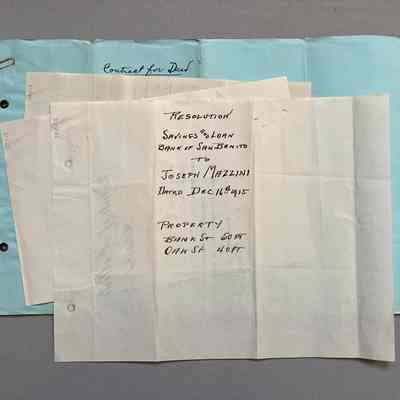 Contract for Deed
RESOLUTION
SAVINGS & LOAN
BANK OF SAN BENITO
TO
JOSEPH MAZZINI
DATED DEC 16th 1915
PROPERTY
BANK ST 50 FT
OAK ST 40 FT